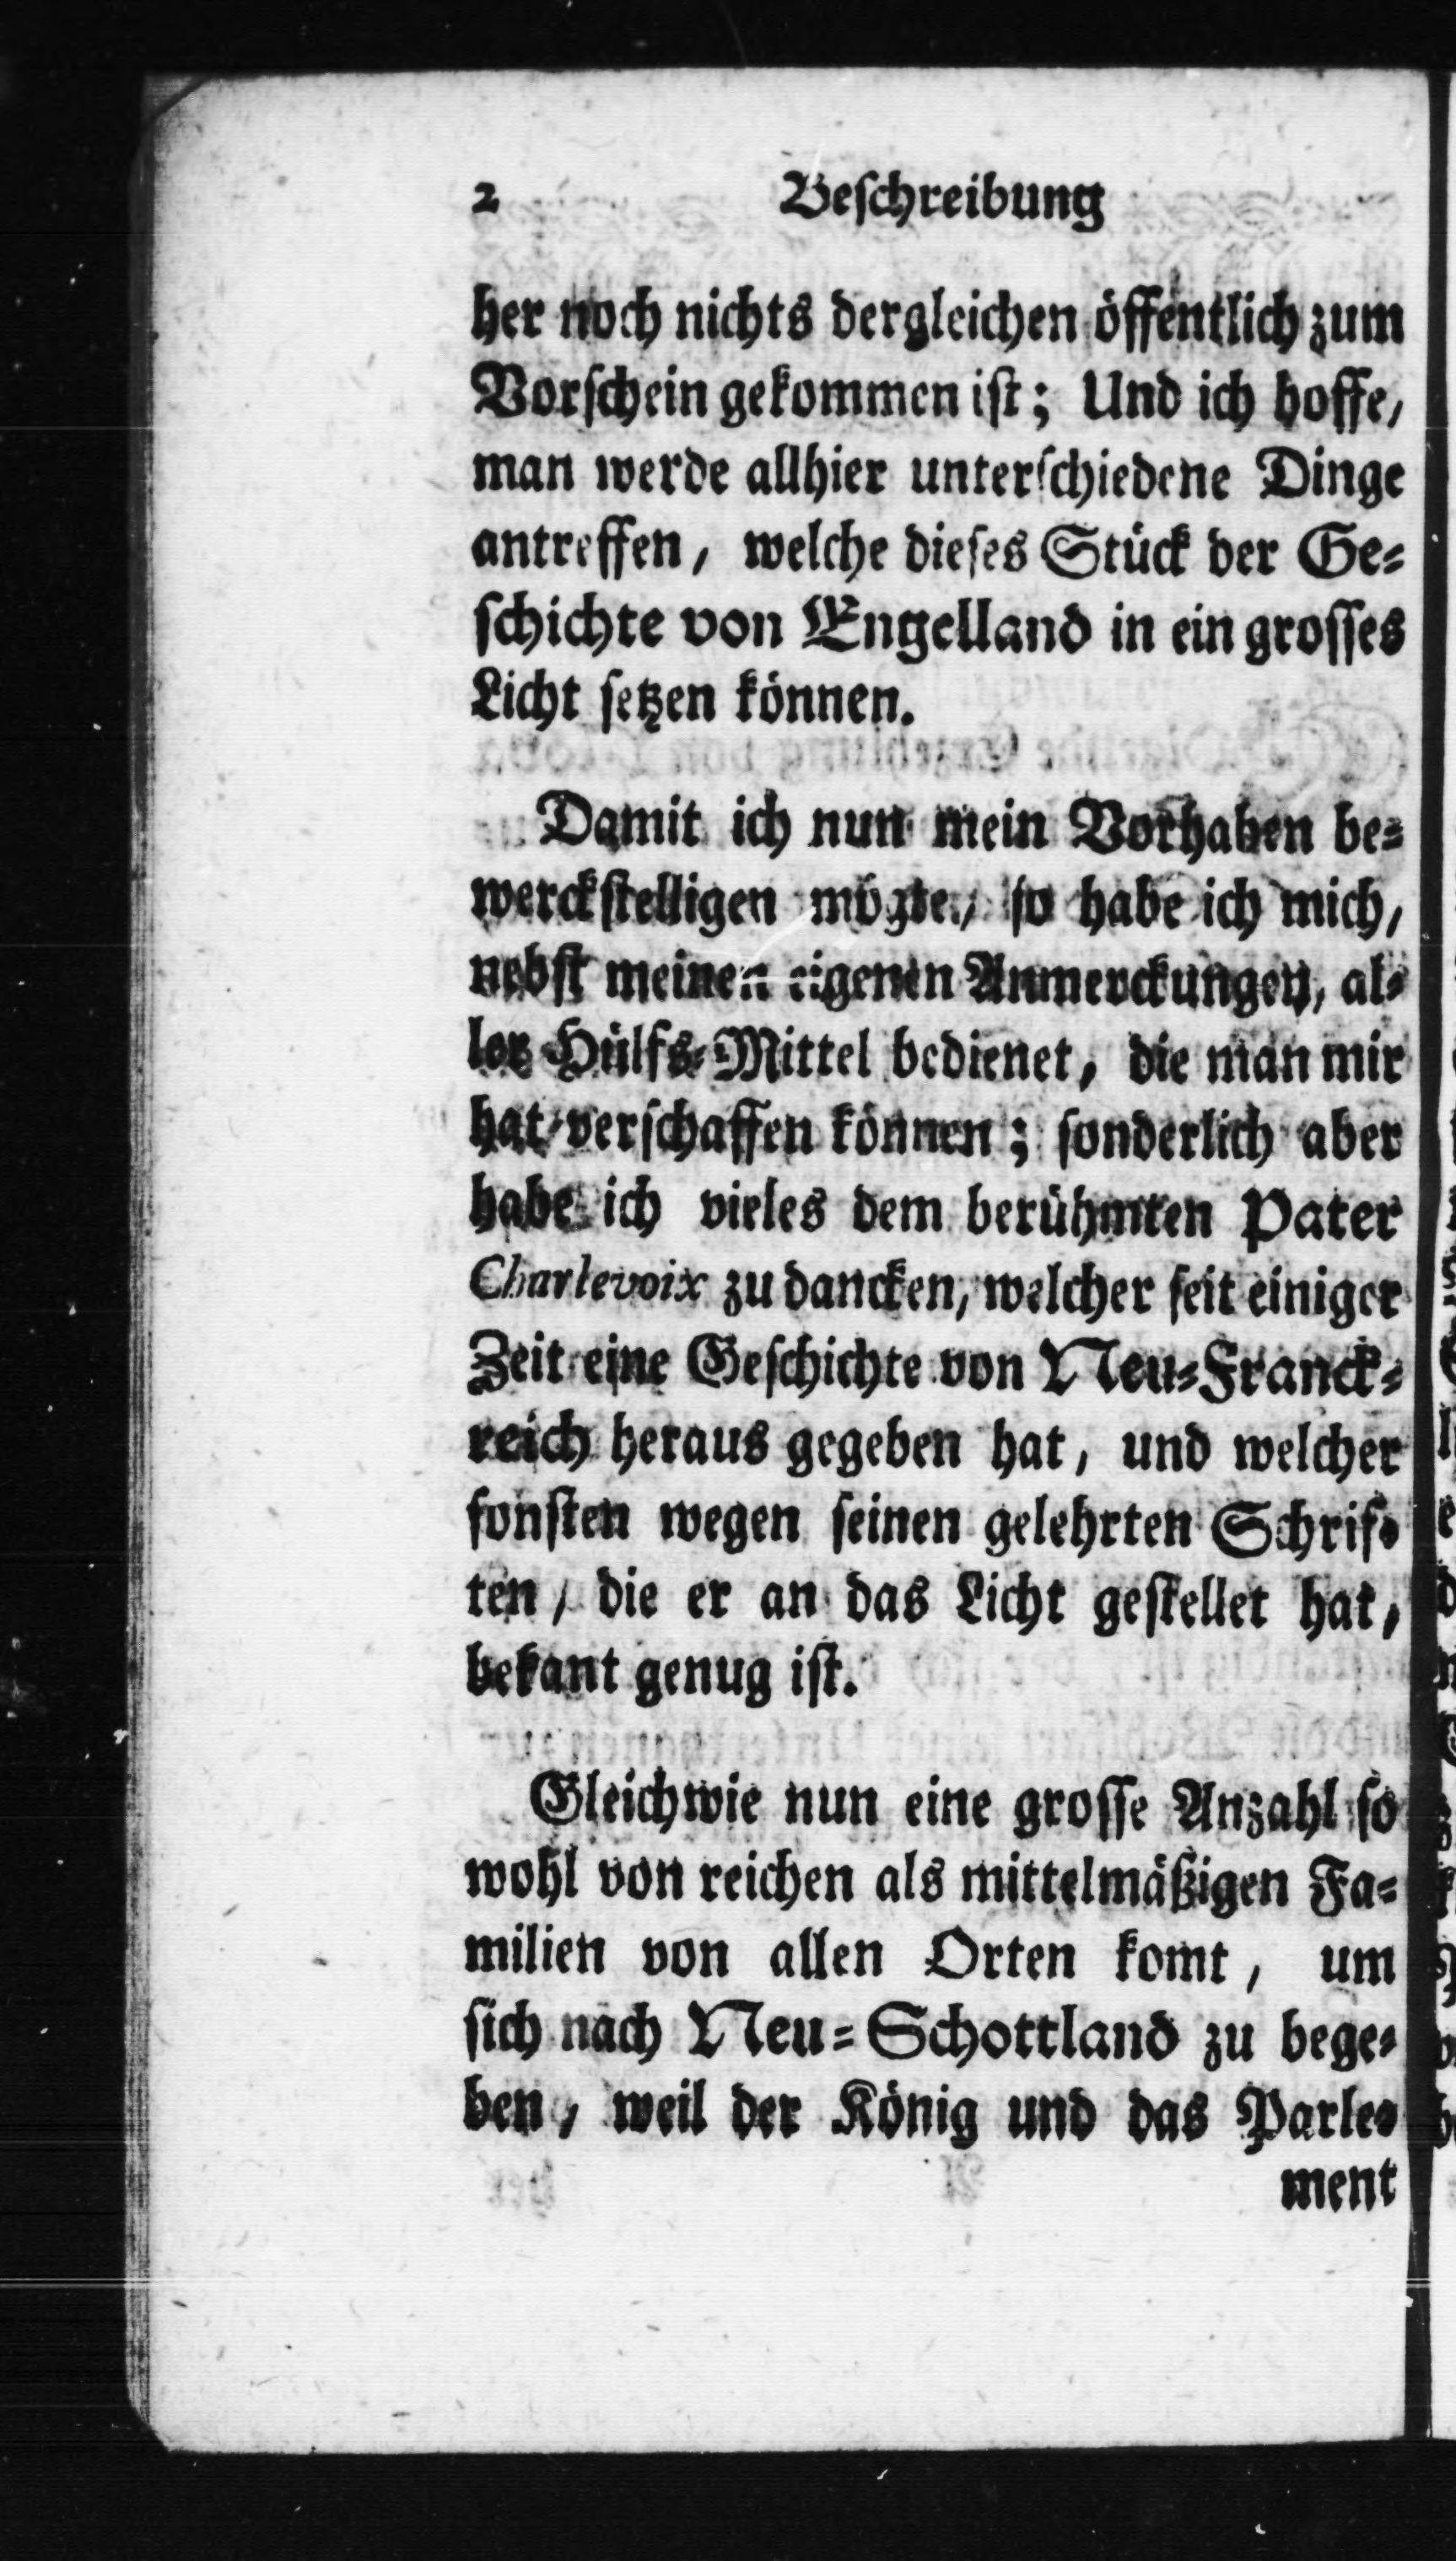 2 Beschreibung
her noch nichts dergleichen öffentlich zum
Vorschein gekommen ist; Und ich hoffe,
man werde allhier unterschiedene Dinge
antreffen, welche dieses Stück der Ge-
schichte von Engelland in ein grosses
Licht setzen können.
Damit ich nun mein Vorhaben be-
werckstelligen mögte, so habe ich mich,
nebst meinen eigenen Anmerckungen, al-
ler Hülfs-Mittel bedienet, die man mir
hat verschaffen können; sonderlich aber
habe ich vieles dem berühmten Pater
Charlevoix zu dancken, welcher seit einiger
Zeit eine Geschichte von Neu-Franck-
reich heraus gegeben hat, und welcher
sonsten wegen seinen gelehrten Schrif-
ten, die er an das Licht gestellet hat,
bekant genug ist.
Gleichwie nun eine grosse Anzahl so
wohl von reichen als mittelmäßigen Fa-
milien von allen Orten komt, um
sich nach Neu-Schottland zu bege-
ben, weil der König und das Parle-
ment